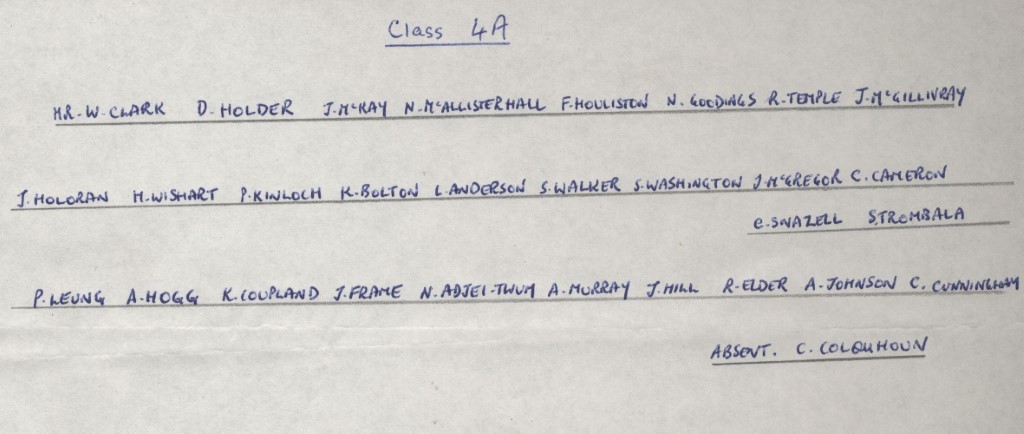 Class 4A
MR. W. CLARK D. HOLDER J. McKAY N. McALLISTERHALL F. HOULISTON N. GOODINGS R. TEMPLE J. McGILLIVRAY
J. HOLORAN M. WISHART P. KINLOCH K. BOLTON L. ANDERSON S. WALKER S. WASHINGTON J. McGREGOR C. CAMERON
C. SWAZELL S. TROMBALA
P. LEUNG A. HOGG K. COUPLAND J. FRAME N. ADJEI-TWUM A. MURRAY J. HILL R. ELDER A. JOHNSON C. CUNNINGHAM
ABSENT. C. COLQUHOUN